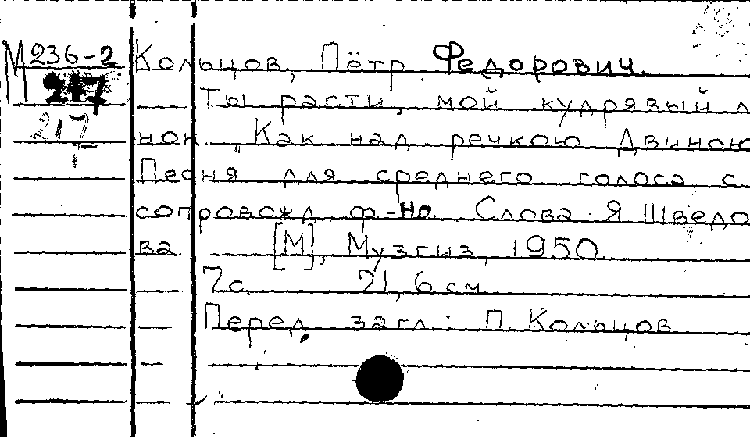 М236-2
247
217
Кольцов, Пётр Федорович.
Ты расти, мой кудрявый л
нок. "Как над речкою Двиною
Песня для среднего голоса с
сопровожд. ф-но. Слова Я. Шведо
ва [М], Музгиз, 1950.
7с. 21,6 см
Перед загл.: П. Кольцов